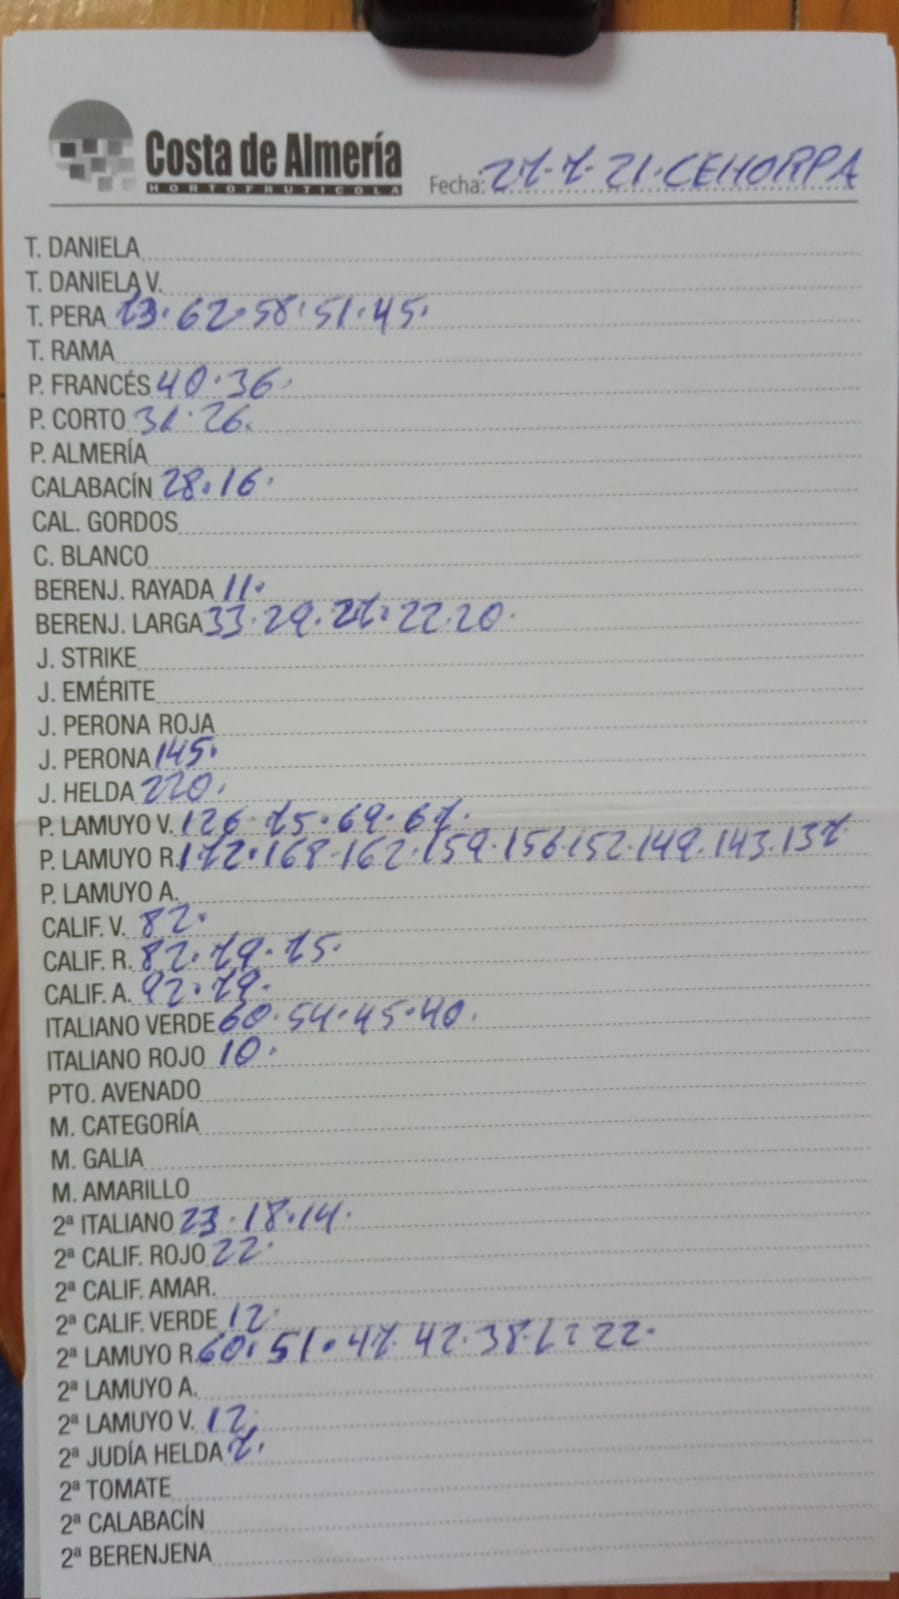 Costa de Almería
HORTOFRUTICOLA
Fecha: 27.7.21.CEHORPA
T. DANIELA
T. DANIELA V.
T. PERA 73.62.58.51.45.
T. RAMA
P. FRANCÉS 40.36.
P. CORTO 31.26.
P. ALMERÍA
CALABACÍN 28.16.
CAL. GORDOS
C. BLANCO
BERENJ. RAYADA 11.
BERENJ. LARGA 33.29.27.22.20.
J. STRIKE
J. EMÉRITE
J. PERONA ROJA
J. PERONA 145.
J. HELDA 220.
P. LAMUYO V. 126.75.69.67.
P. LAMUYO R. 172.168.162.159.156.152.149.143.137
P. LAMUYO A.
CALIF. V. 82.
CALIF. R. 82.79.75.
CALIF. A. 92.79.
ITALIANO VERDE 60.54.45.40.
ITALIANO ROJO 10.
PTO. AVENADO
M. CATEGORÍA
M. GALIA
M. AMARILLO
2ª ITALIANO 23.18.14.
2ª CALIF. ROJO 22.
2ª CALIF. AMAR.
2ª CALIF. VERDE 12.
2ª LAMUYO R. 60.51.47.42.38. 22.
2ª LAMUYO A.
2ª LAMUYO V. 12.
2ª JUDÍA HELDA 7.
2ª TOMATE
2ª CALABACÍN
2ª BERENJENA